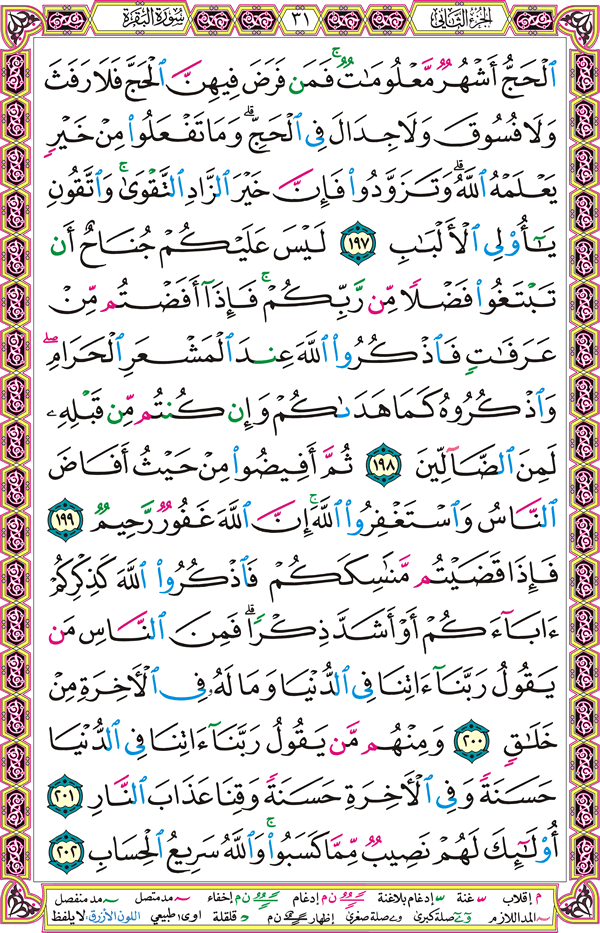 الجزء الثاني ٣١ سورة البقرة
ٱلْحَجُّ أَشْهُرٌ مَّعْلُومَٰتٌ ۚ فَمَن فَرَضَ فِيهِنَّ ٱلْحَجَّ فَلَا رَفَثَ
وَلَا فُسُوقَ وَلَا جِدَالَ فِى ٱلْحَجِّ ۗ وَمَا تَفْعَلُوا۟ مِنْ خَيْرٍ
يَعْلَمْهُ ٱللَّهُ ۗ وَتَزَوَّدُوا۟ فَإِنَّ خَيْرَ ٱلزَّادِ ٱلتَّقْوَىٰ ۚ وَٱتَّقُونِ
يَٰٓأُو۟لِى ٱلْأَلْبَٰبِ ١٩٧ لَيْسَ عَلَيْكُمْ جُنَاحٌ أَن
تَبْتَغُوا۟ فَضْلًا مِّن رَّبِّكُمْ ۚ فَإِذَآ أَفَضْتُم مِّنْ
عَرَفَٰتٍ فَٱذْكُرُوا۟ ٱللَّهَ عِندَ ٱلْمَشْعَرِ ٱلْحَرَامِ ۖ
وَٱذْكُرُوهُ كَمَا هَدَىٰكُمْ وَإِن كُنتُم مِّن قَبْلِهِۦ
لَمِنَ ٱلضَّآلِّينَ ١٩٨ ثُمَّ أَفِيضُوا۟ مِنْ حَيْثُ أَفَاضَ
ٱلنَّاسُ وَٱسْتَغْفِرُوا۟ ٱللَّهَ ۚ إِنَّ ٱللَّهَ غَفُورٌ رَّحِيمٌ ١٩٩
فَإِذَا قَضَيْتُم مَّنَٰسِكَكُمْ فَٱذْكُرُوا۟ ٱللَّهَ كَذِكْرِكُمْ
ءَابَآءَكُمْ أَوْ أَشَدَّ ذِكْرًا ۗ فَمِنَ ٱلنَّاسِ مَن
يَقُولُ رَبَّنَآ ءَاتِنَا فِى ٱلدُّنْيَا وَمَا لَهُۥ فِى ٱلْءَاخِرَةِ مِنْ
خَلَٰقٍ ٢٠٠ وَمِنْهُم مَّن يَقُولُ رَبَّنَآ ءَاتِنَا فِى ٱلدُّنْيَا
حَسَنَةً وَفِى ٱلْءَاخِرَةِ حَسَنَةً وَقِنَا عَذَابَ ٱلنَّارِ ٢٠١
أُو۟لَٰٓئِكَ لَهُمْ نَصِيبٌ مِّمَّا كَسَبُوا۟ ۚ وَٱللَّهُ سَرِيعُ ٱلْحِسَابِ ٢٠٢
م إقلاب غنة إدغام بلاغنة ن م إدغام ن م إخفاء مد متصل مد منفصل
المد اللازم صلة كبرى صلة صغرى إظهار ن م قلقلة اوى طبيعي اللون الأزرق: لا يلفظ